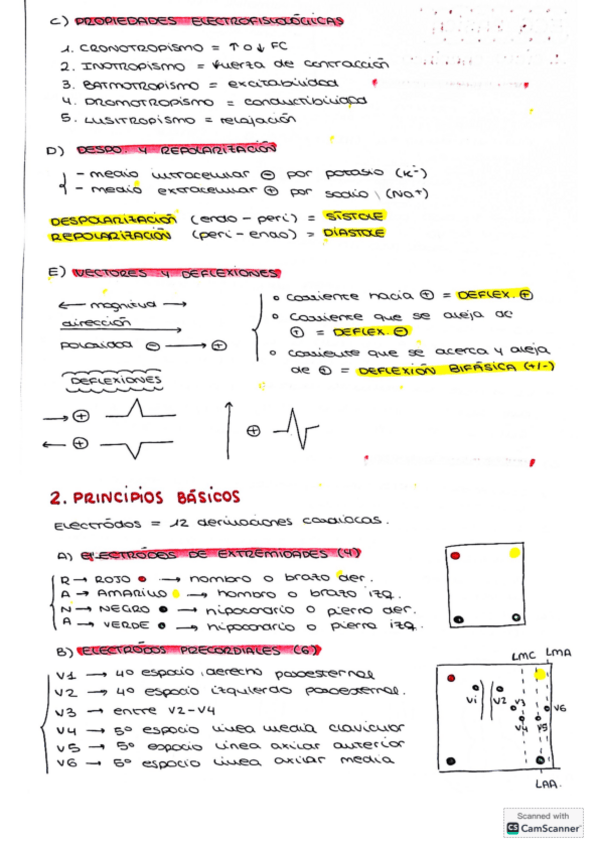 C) PROPIEDADES ELECTROFISIOLÓGICAS
1. CRONOTROPISMO = ↑ o ↓ FC
2. INOTROPISMO = fuerza de contracción
3. BATMOTROPISMO = excitabilidad
4. DROMOTROPISMO = conductibilidad
5. LUSITROPISMO = relajación
D) DESPO. Y REPOLARIZACIÓN
- medio intracelular ⊖ por potasio (K-)
- medio extracelular ⊕ por sodio (Na+)
DESPOLARIZACIÓN (endo - peri) = SÍSTOLE
REPOLARIZACIÓN (peri - endo) = DIÁSTOLE
E) VECTORES Y DEFLEXIONES
← magnitud →
dirección
polaridad ⊖ → ⊕
o corriente hacia ⊕ = DEFLEX. ⊕
o corriente que se aleja de
⊕ = DEFLEX. ⊖
o corriente que se acerca y aleja
de ⊕ = DEFLEXIÓN BIFÁSICA (+/-)
DEFLEXIONES
→ ⊕
← ⊕
⊕
2. PRINCIPIOS BÁSICOS
Electródos = 12 derivaciones cardíacas.
A) ELECTRODOS DE EXTREMIDADES (4)
R → ROJO → hombro o brazo der.
A → AMARILLO → hombro o brazo izq.
N → NEGRO → hipocondrio o pierna der.
A → VERDE → hipocondrio o pierna izq.
B) ELECTRODOS PRECORDIALES (6)
V1 → 4º espacio derecho paraesternal
V2 → 4º espacio izquierdo paraesternal.
V3 → entre V2-V4
V4 → 5º espacio línea media clavicular
V5 → 5º espacio línea axilar anterior
V6 → 5º espacio línea axilar media
LMC LMA
V1 V2 V3 V4 V5 V6
LAA.
Scanned with
CS CamScanner